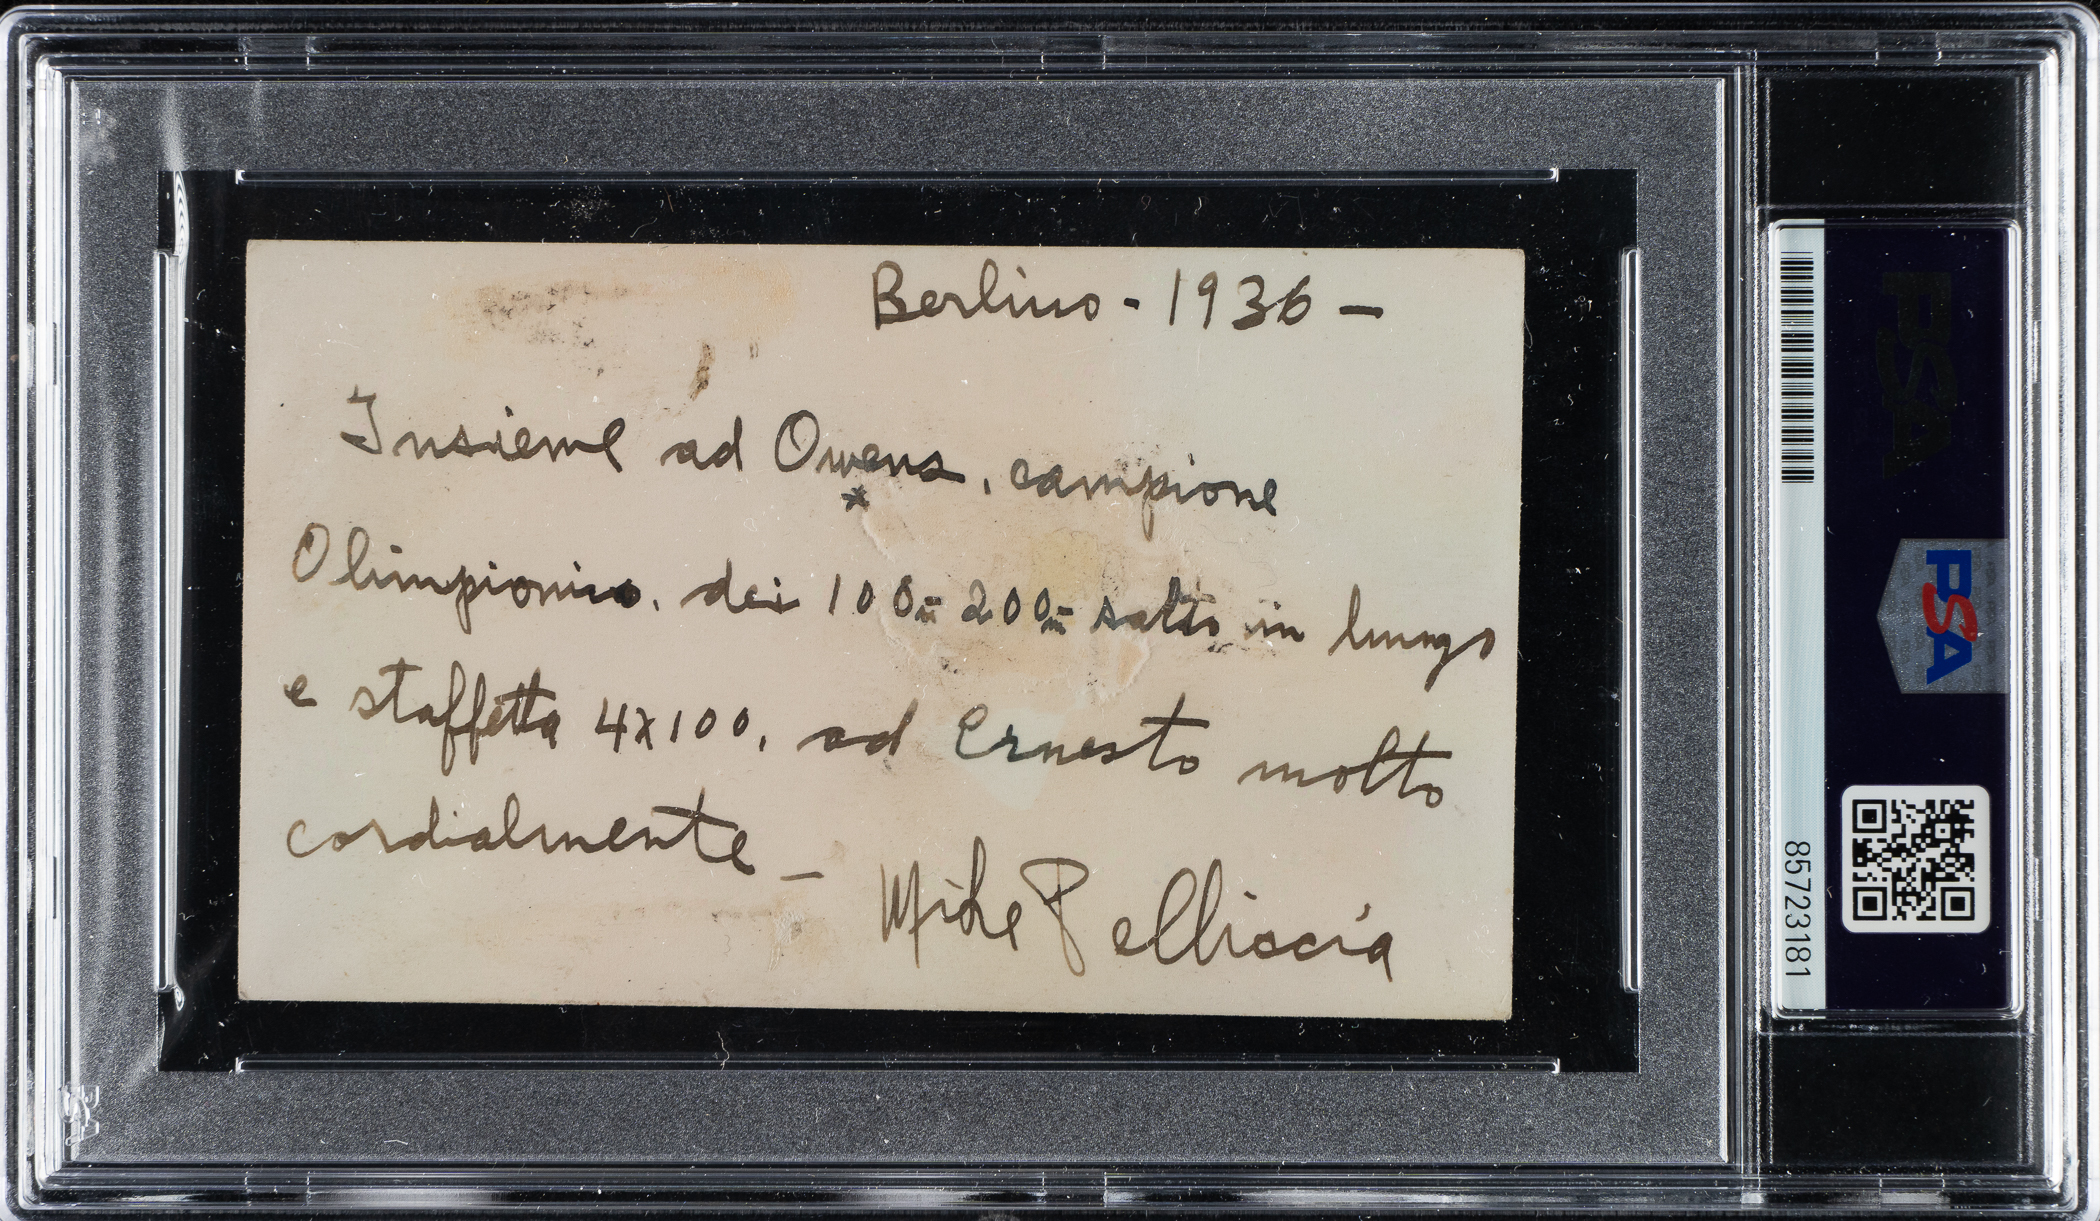 Berlino - 1936 -
Insieme ad Owens, campione
*
Olimpionico, dei 100m 200m salto in lungo
e staffetta 4x100, ad Ernesto molto
cordialmente -
Mike Pelliccia
PSA
PSA
85723181